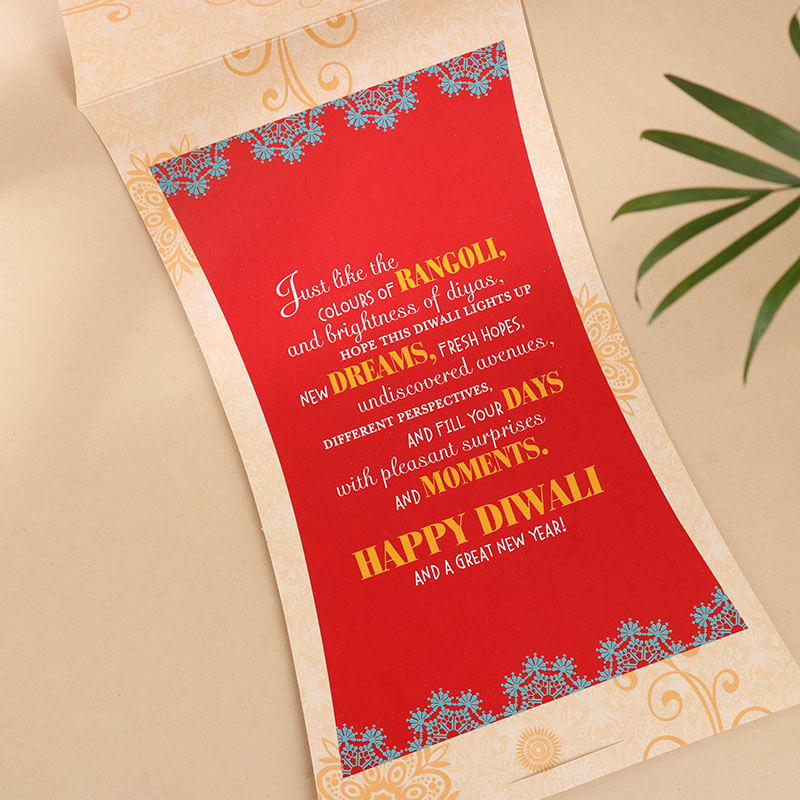 Just like the
COLOURS OF RANGOLI,
and brightness of diyas,
HOPE THIS DIWALI LIGHTS UP
NEW DREAMS, FRESH HOPES,
undiscovered avenues,
DIFFERENT PERSPECTIVES,
AND FILL YOUR DAYS
with pleasant surprises
AND MOMENTS.
HAPPY DIWALI
AND A GREAT NEW YEAR!